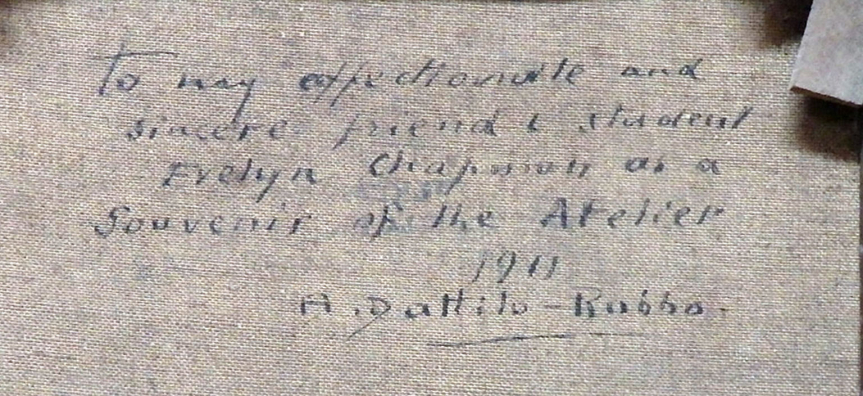 To my affectionate and
sincere friend & student
Evelyn Chapman as a
Souvenir of the Atelier
1911
A. Dattilo-Rubbo.